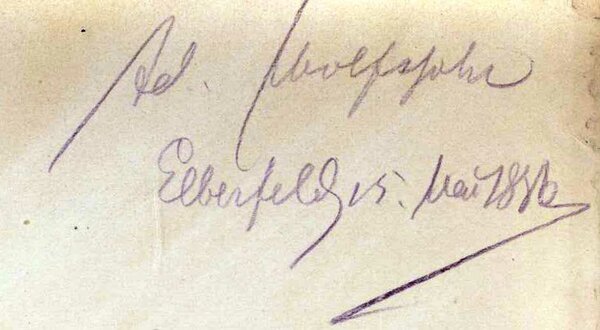 Ad. Wolfssohn
Elberfeld, 15. Mai 1886